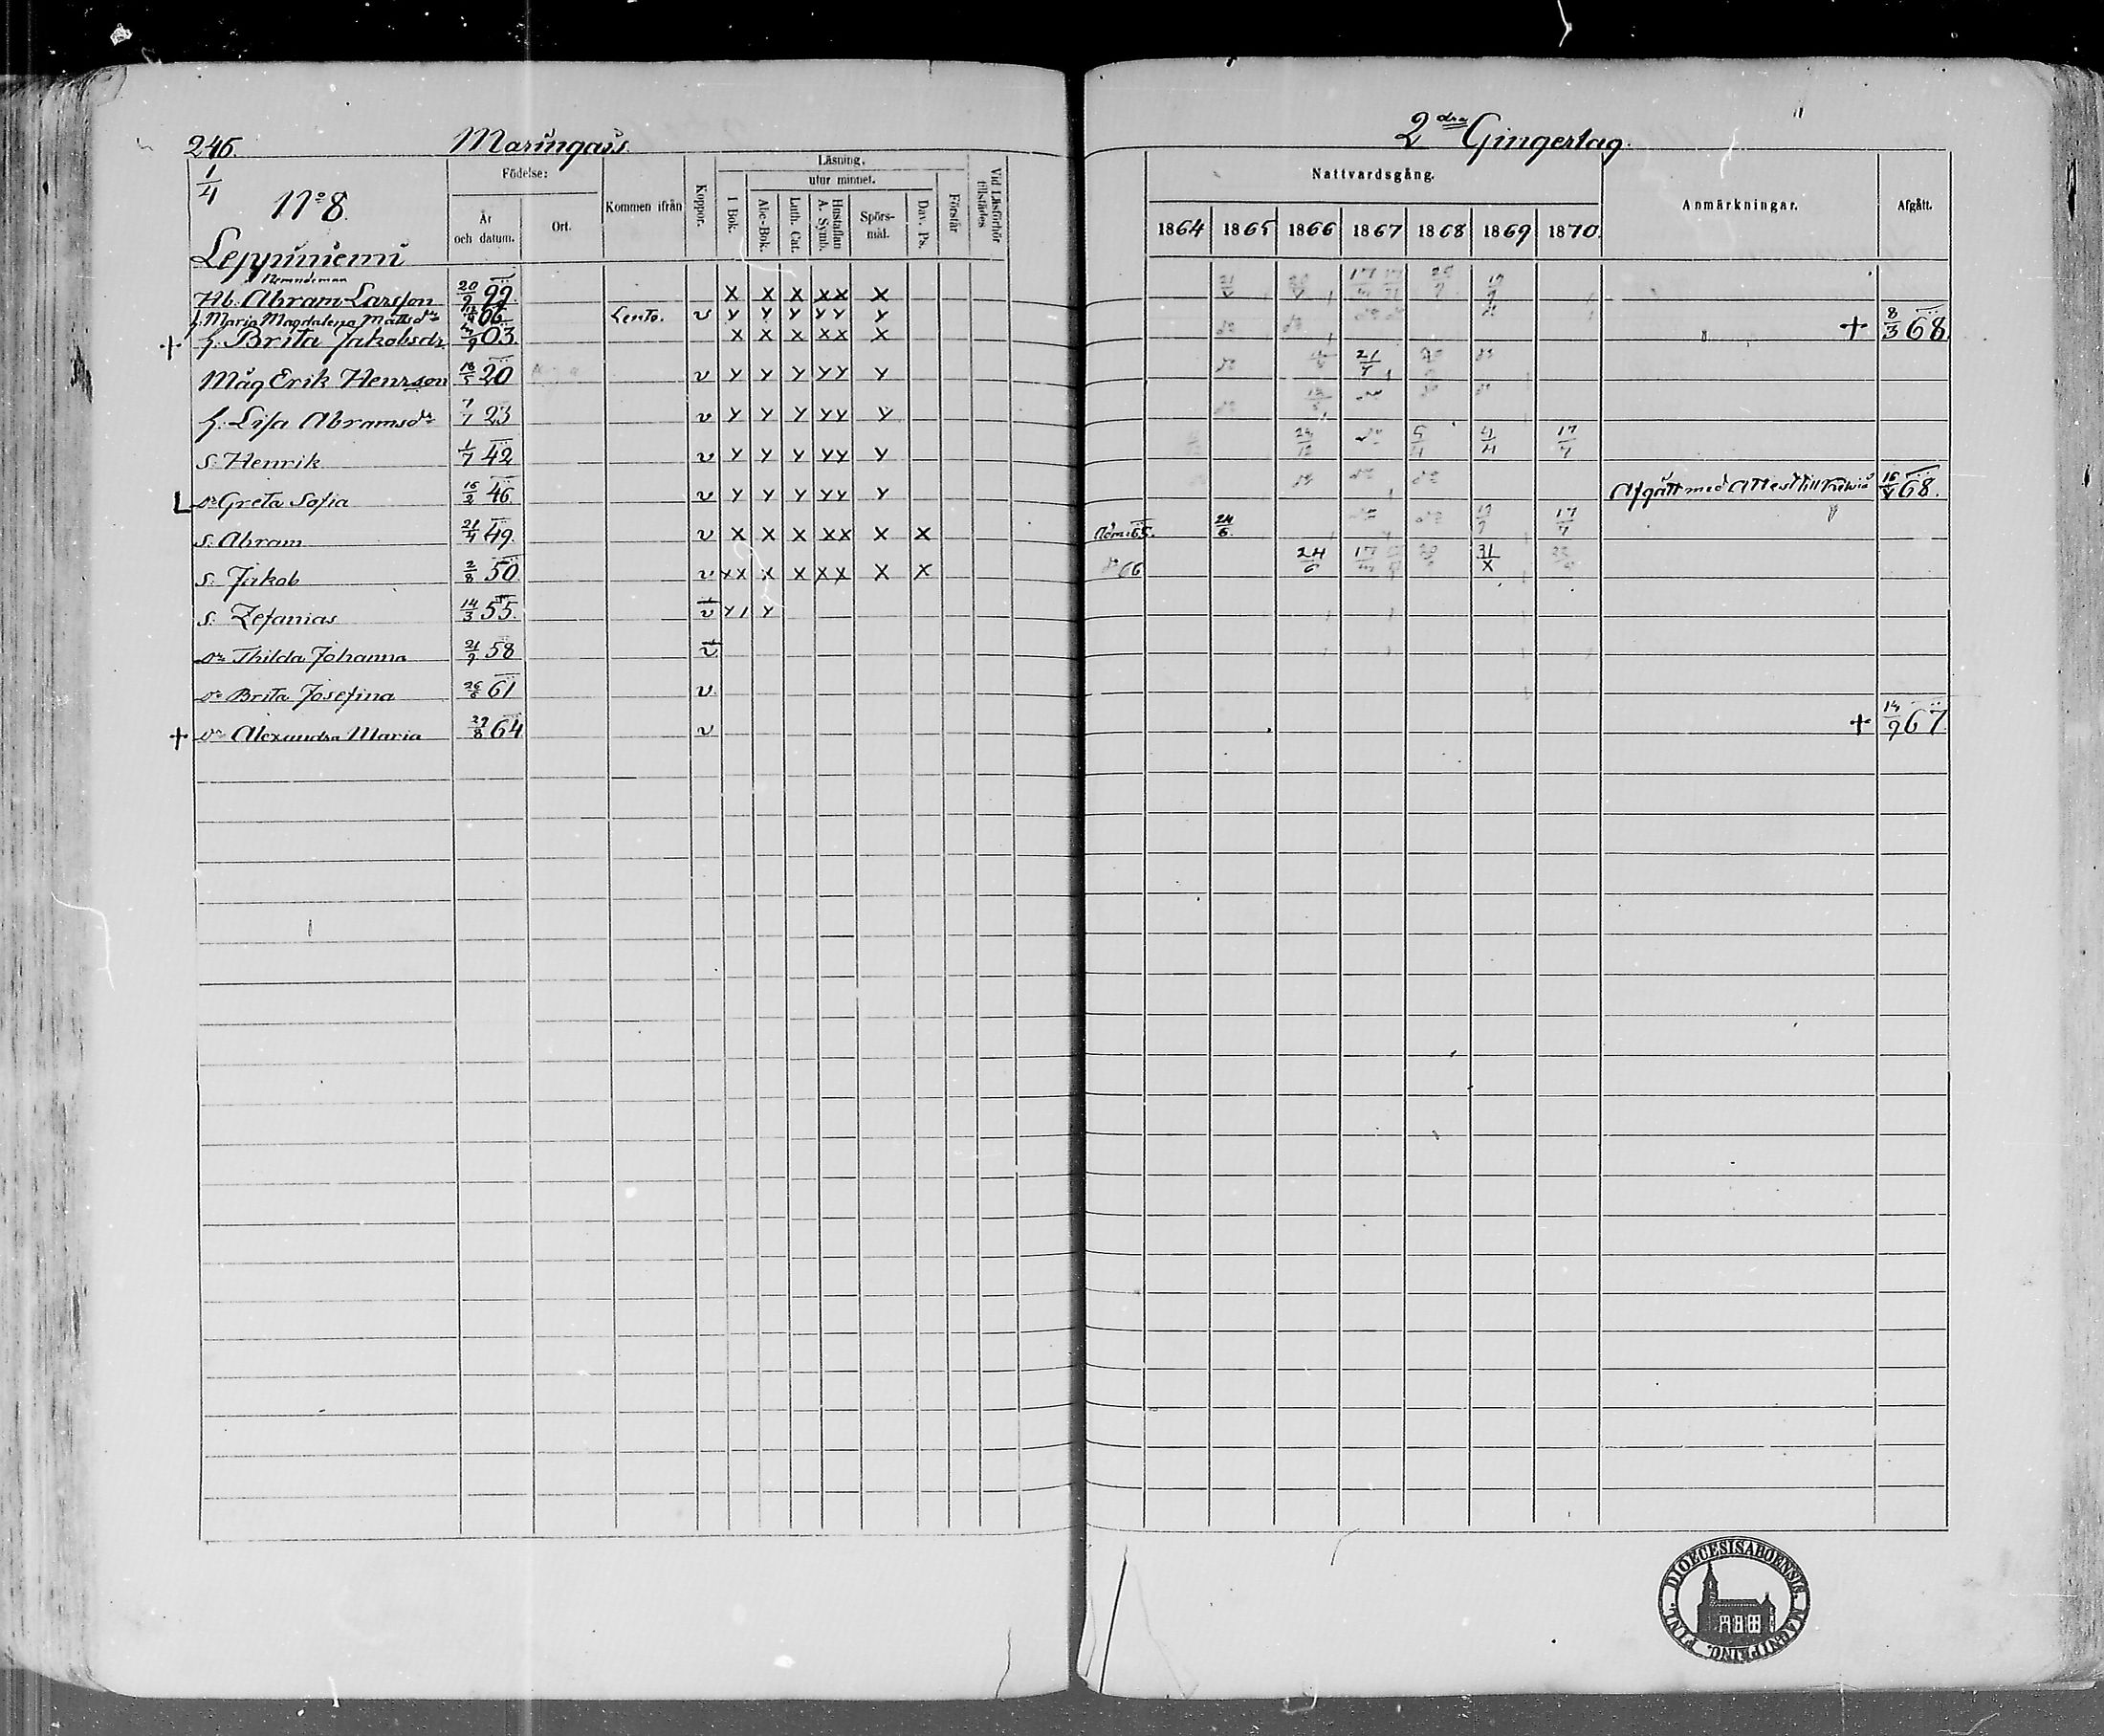 246.
Maringais
2dra Gingertag.
1/4
No 8.
Leppiniemi
Födelse:
År och datum.
Ort.
Kommen ifrån
Koppor.
Läsning.
I Bok.
utur minnet.
Abc-Bok.
Luth. Cat.
Hustaflan A. Symb.
Spörs-mål.
Dav. Ps.
Förstår
Vid Läsförhör tillstädes
Nattvardsgång.
1864 1865 1866 1867 1868 1869 1870.
Anmärkningar.
Afgått.
Nämndeman
Hb. Abram Larsson 20/9 99 X X X XX X
h. Maria Magdalena Mattsdr 66 Lento. v Y Y Y YY Y
+ h. Brita Jakobsdr 03 X X X XX X + 8/3 68.
Måg Erik Henrsson 18/5 20 v Y Y Y YY Y 21/7
h. Lisa Abramsdr 7/7 23 v Y Y Y YY Y
S. Henrik 1/7 42 v Y Y Y YY Y 24/12 5/4 4/4 17/7
L dr Greta Sofia 16/2 46 v Y Y Y YY Y Afgått med Attest till 16/4 68.
S. Abram 21/4 49 v X X X XX X X Adm. 65. 24/6 17/7
S. Jakob 2/8 50 v XX X X XX X X do 66 24/6 31/X
S. Zefanias 14/3 55. v Y1 Y
dr Thilda Johanna 21/9 58 v
dr Brita Josefina 26/8 61 v
+ dr Alexandra Maria 27/8 64 v + 14/9 67.
DIOECESIS ABOENSIS. MAGNI PRINC. FINL.